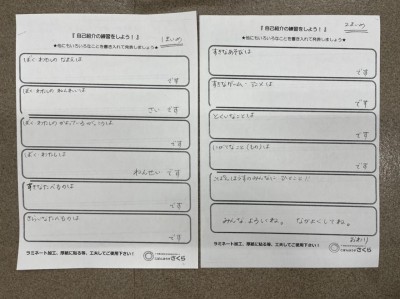 『 自己紹介の練習をしよう！ 』
★他にもいろいろなことを書き入れて発表しましょう★
ぼく・わたしの なまえは
です
ぼく・わたしの ねんれいは
さい です
です
ぼく・わたしは
ねんせい です
すきなたべものは
です
きらいなたべものは
です
ラミネート加工、厚紙に貼る等、工夫してご使用下さい！
さくら
『 自己紹介の練習をしよう！ 』
★他にもいろいろなことを書き入れて発表しましょう★
すきなあそびは
です
すきなゲーム・アニメは
です
とくいなことは
です
にがてなこと(もの)は
です
みんな、よろしくね。 なかよくしてね。
おわり
ラミネート加工、厚紙に貼る等、工夫してご使用下さい！
さくら